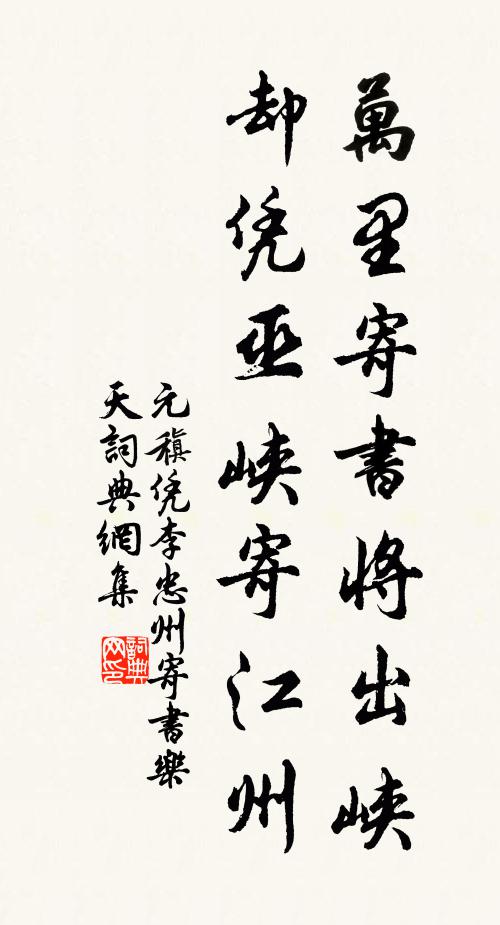 萬里寄書將出峽
却凭巫峽寄江州
元稹凭李忠州寄書樂
天詞典網集
詞典
网印